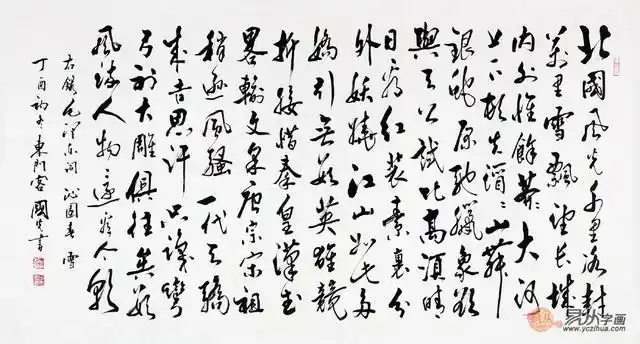 北國風光千里冰封
萬里雪飄望長城
内外惟餘莽〻大河
上下頓失滔〻山舞
銀蛇原馳蠟象欲
與天公試比高須晴
日看紅裝素裹分
外妖嬈江山如此多
嬌引無數英雄競
折腰惜秦皇漢武
畧輸文采唐宗宋祖
稍遜風騷一代天驕
成吉思汗只識彎
弓射大雕俱往矣數
風流人物還看今朝
右錄毛澤東詞沁園春雪
丁酉初冬東門客國書
易从字画
www.yczihua.com